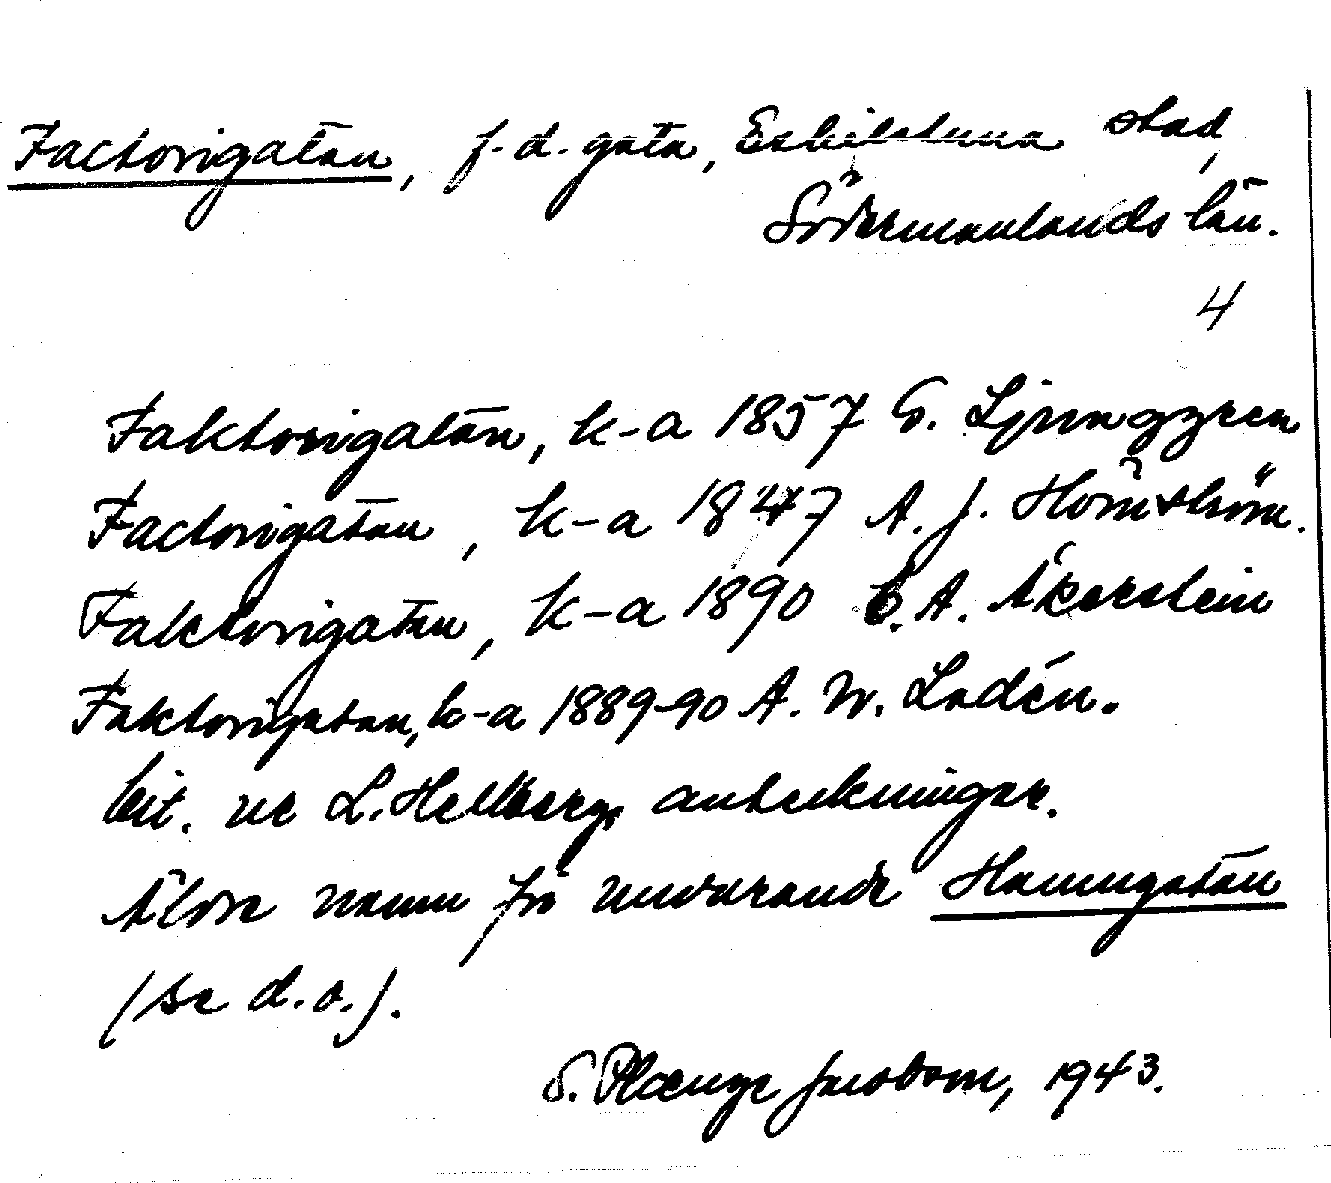 Factorigatan, f.d. gata, Eskilstuna stad,
Södermanlands län.
4
Faktorigatan, k-a 1857 G. Ljunggren
Factorigatan, k-a 1847 A. J. Hörnström.
Faktorigatan, k-a 1890 C. A. Åkerstein
Faktorigatan, k-a 1889-90 A. W. Lodén.
cit. ur L. Hellbergs anteckningar.
Äldre namn på nuvarande Hamngatan
(se d.o.).
S. Plænge Jacobson, 1943.